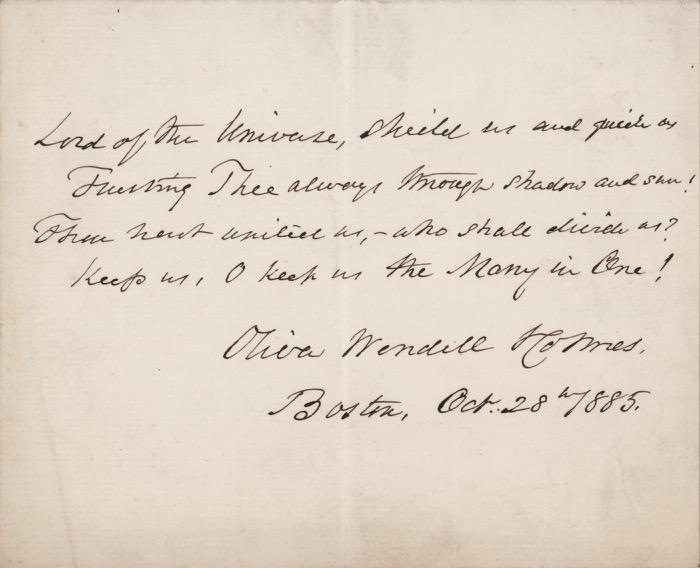 Lord of the Universe, shield us and guide us
Trusting Thee always through shadow and sun!
Thou hast united us, – who shall divide us?
Keep us, O keep us the Many in One!
Oliver Wendell Holmes.
Boston, Oct. 28th 1885.